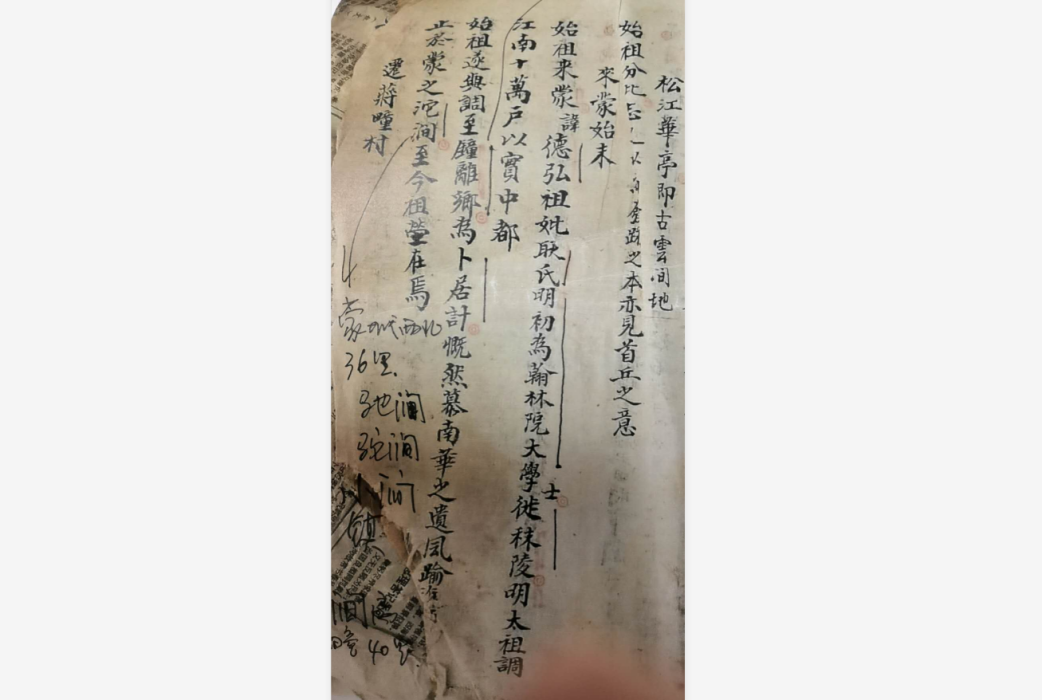 松江華亭即古雲間地
始祖分比忘 之本亦見首丘之意
來蒙始末
始祖来蒙諱德弘祖妣耿氏明初為翰林院大學士徙秣陵明太祖調
江南十萬戶以實中都
始祖遂與調至鐘離鄉為卜居計慨然慕南華之遺風踰淮
止於蒙之沱澗至今祖塋在焉
遷蔣疃村
蒙城西北
36里
驼澗
小澗
镇
40里